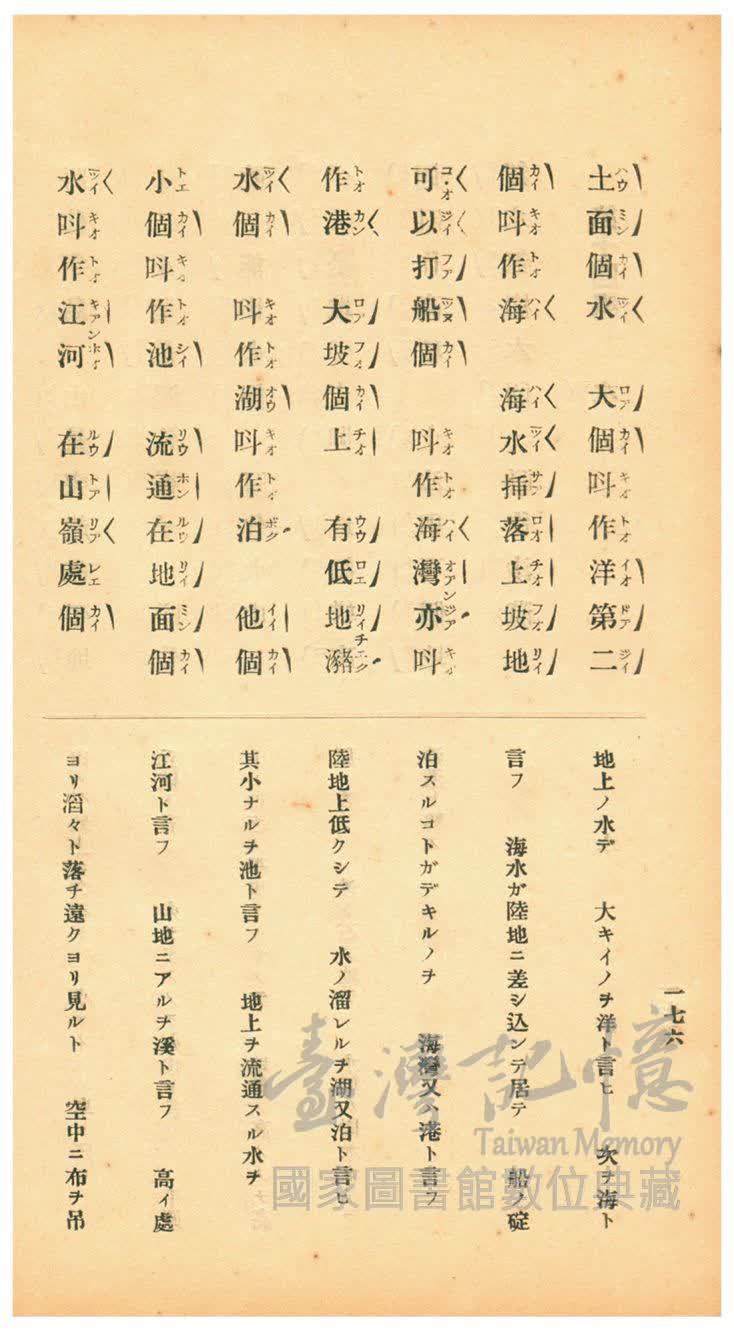 土面個水 大個呌作洋第二
個呌作海 海水揷落上坡地
可以打船個 呌作海灣亦呌
作港 大坡個上 有低地瀦
水個 呌作湖呌作泊 他個
小個呌作池 流通在地面個
水呌作江河 在山嶺處個
地上ノ水デ 大キイノヲ洋ト言ヒ 次ヲ海ト
言フ 海水ガ陸地ニ差シ込ンデ居テ 船ノ碇
泊スルコトガデキルノヲ 海灣又ハ港ト言フ
陸地上低クシテ 水ノ溜レルヲ湖又泊ト言ヒ
其小ナルヲ池ト言フ 地上ヲ流通スル水ヲ
江河ト言フ 山地ニアルヲ溪ト言フ 高イ處
ヨリ滔々ト落チ遠クヨリ見ルト 空中ニ布ヲ吊
一七六
臺灣記憶
Taiwan Memory
國家圖書館數位典藏